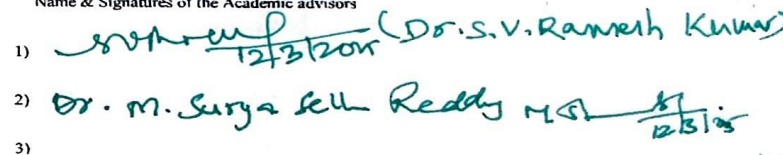 Name & Signatures of the Academic advisors
1) 12/3/2025 (Dr. S. V. Ramesh Kumar)
2) Dr. M. Surya Sell Reddy 12/3/25
3)